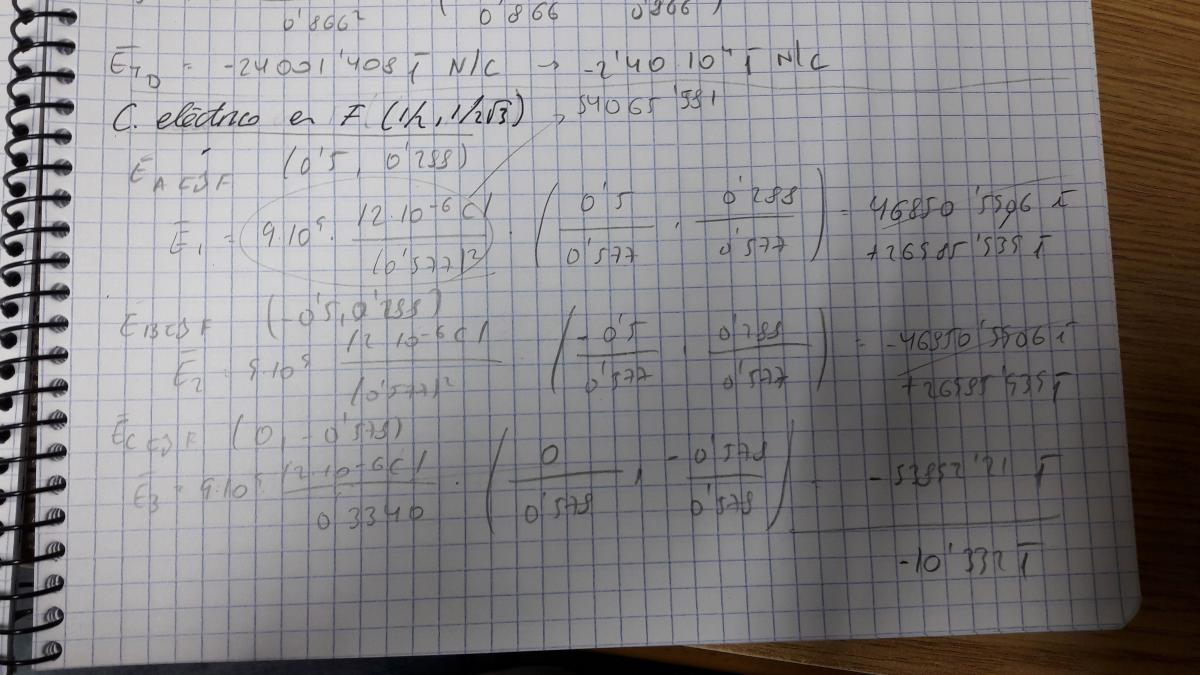 0'866² 0'866 0'866 )
E̅TD = -24001'408 j̅ N/C → -2'40 10⁴ j̅ N/C
C. eléctrico en F (1/2, 1/2√3) → 54065'591
E̅A es F (0'5, 0'288)
E̅1 = 9·10⁹ · 12·10⁻⁶ C/ (0'577)² · ( 0'5 / 0'577 , 0'288 / 0'577 ) = 46850'5506 i̅
+26985'939 j̅
E̅B es F (-0'5, 0'288)
E̅2 = 9·10⁹ 12 10⁻⁶ C/ (0'577)² ( -0'5 / 0'577 , 0'288 / 0'577 ) = -46850'5506 i̅
+26985'939 j̅
E̅C es F (0, -0'578)
E̅3 = 9·10⁹ 12·10⁻⁶ C/ 0'3340 · ( 0 / 0'578 , -0'578 / 0'578 ) = -53892'21 j̅
-10'332 j̅